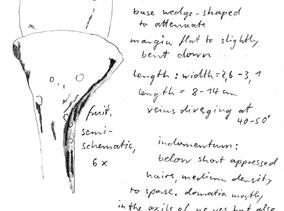 base wedge-shaped
to attenuate
margin flat to slightly
bent down
length : width = 2,6 - 3,1
length = 8-14 cm
veins diverging at
40-50°
fruit,
semi-
schematic,
6 x
indumentum:
below short appressed
hairs, medium density
to sparse. domatia mostly
in the axils of nerves but also